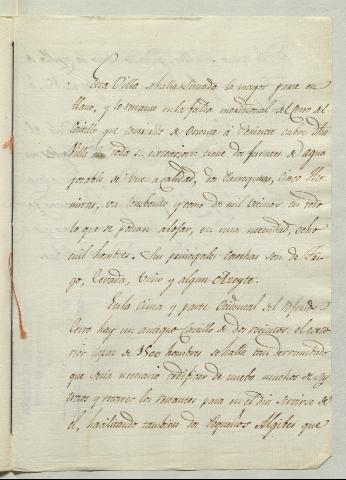 Esta Villa se halla situada la mayor parte en
llano, y lo restante en la falda meridional del Cerro del
Castillo que corriendo de Oriente á Poniente cubre dha
Villa en toda su extension tiene dos fuentes de agua
potable de buena calidad, dos Parroquias, Cinco Her-
mitas, un Combento, y como dos mil vecinos en todo
lo que se podran alojar, en una necesidad, ocho
mil hombres. Sus principales cosechas son de Tri-
go, Cevada, Vino y algun Azeyte.
En la Cima y parte Occidental del
Cerro hay un antiguo Castillo de dos recintos: el exte-
rior capaz de 1500 hombres se halla tan derrumbado
que seria necesario redificar de nuebo muchos de sus
trozos y recorrer los restantes para en el dia servirse de
el, havilitando tambien dos Pequeños Algibes que